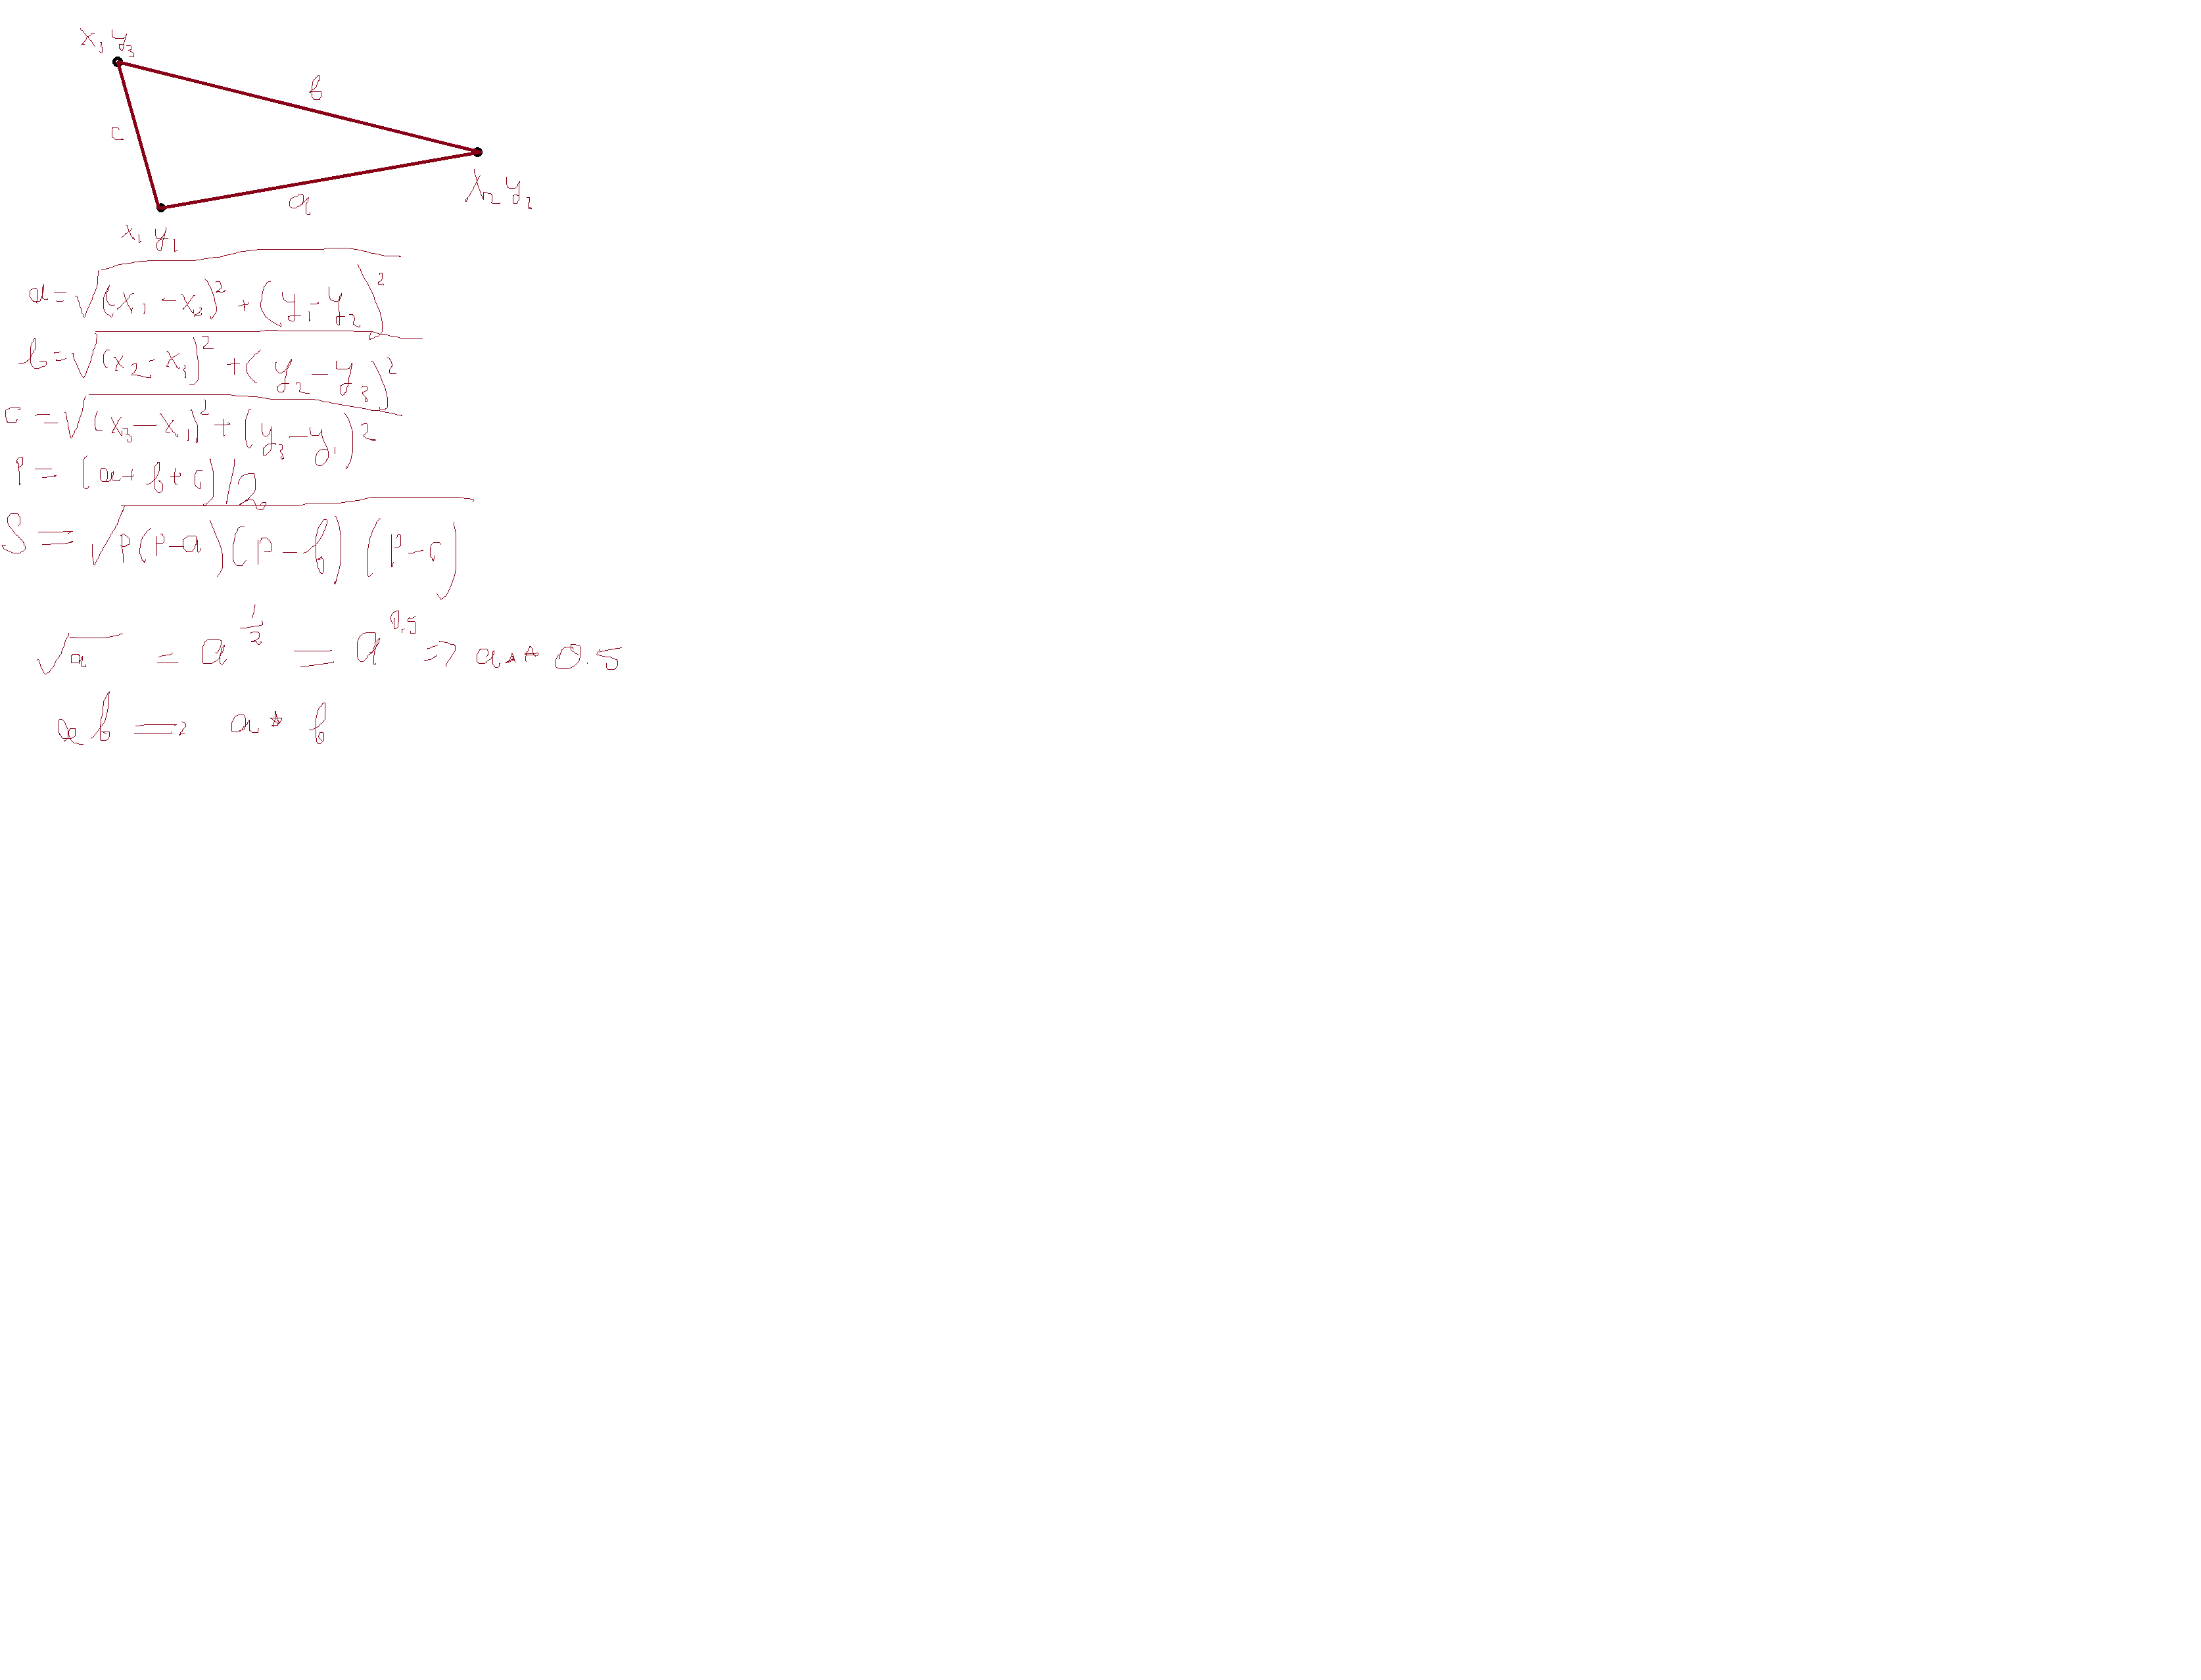 x₃ y₃
b
c
x₂ y₂
a
x₁ y₁
a = √((x₁ - x₂)² + (y₁ - y₂)²)
b = √((x₂ - x₃)² + (y₂ - y₃)²)
c = √((x₃ - x₁)² + (y₃ - y₁)²)
p = (a + b + c) / 2
S = √(p(p-a)(p-b)(p-c))
√a = a^(1/2) = a^0.5 => a ** 0.5
ab => a * b